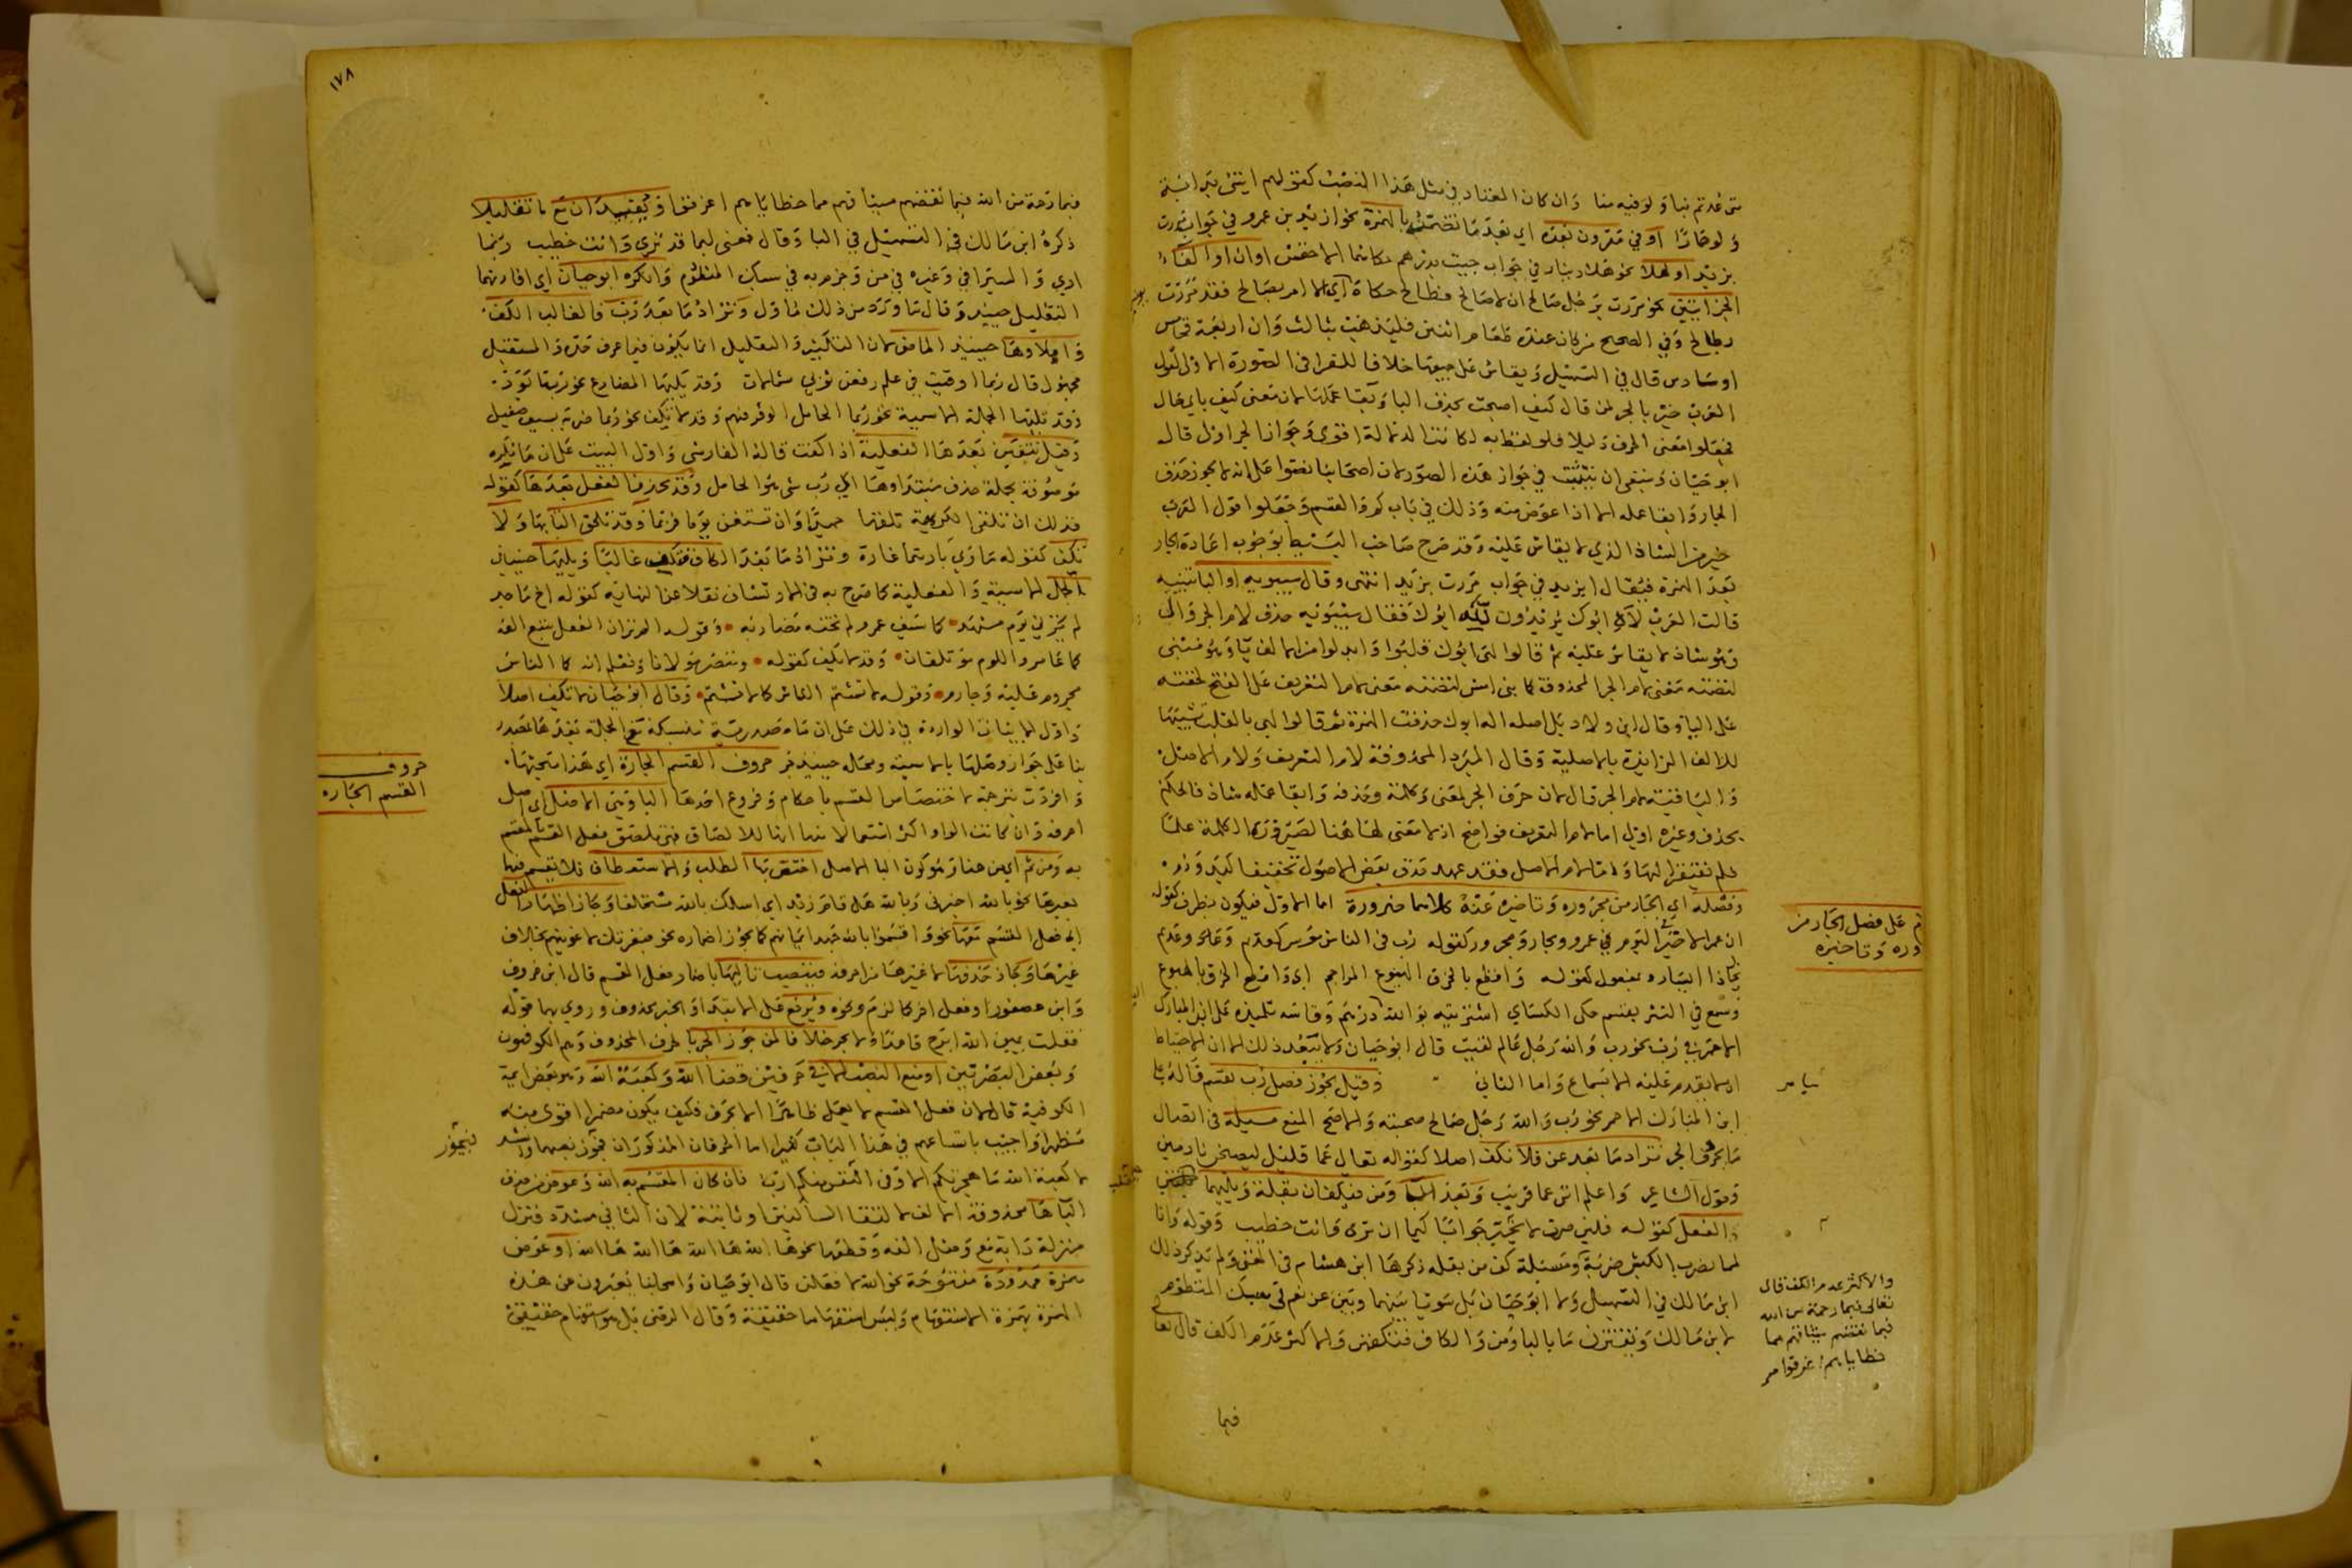 متى عدتم نبا ولو فيه منا وان كان المعتاد في مثل هذا النصب كقولهم ايتني بدابة
ولو حمارا او في مقرون بعده اي بعد ما تضمنه بالهمزة نحو ازيد بن عمرو في جواب مررت
بزيد او هلا نحو هلا دينار في جواب جيت بدرهم حكاهما الاخفش او ان او الفاء
الجزائيتين نحو مررت برجل صالح ان لا صالح فطالح حكاه اي الا امر بصالح فقد مررت
بطالح وفي الصحيح من كان عنده طعام اثنين فليذهب بثالث وان اربعة فخامس
او سادس قال في التسهيل ويقاس على جميعها خلافا للفرا في الصورة الاولى لقول
العرب خير بالجر لمن قال كيف اصبحت بحذف الباء وبقا عملها لان معنى كيف باي حال
فجعلوا معنى الحرف دليلا فلو لفظ به لكانت الدلالة اقوى وجواز الجر اولى قال
ابو حيان وينبغي ان يتثبت في جواز هذه الصور لان اصحابنا نصوا على انه لا يجوز حذف
الجار وابقا عمله الا اذا عوض منه وذلك في باب كم والقسم وجعلوا قول العرب
خير من الشاذ الذي لا يقاس عليه وقد صرح صاحب البسيط بوجوب اعادة الجار
بعد الهمزة فيقال ازيد في جواب مررت بزيد انتهى وقال سيبويه او الباء تنبيه
قالت العرب لاه ابوك يريدون لله ابوك فقال سيبويه حذف لام الجر وال
وهو شاذ لا يقاس عليه ثم قالوا لهى ابوك قلبوا وابدلوا من الالف يا وهو مبني
لتضمنه معنى لام الجر المحذوفة كما بني امس لتضمنه معنى لام التعريف على الفتح لخفته
على اليا وقال ابن ولاد بل اصله اله ابوك حذفت الهمزة ثم قالوا لهى بالقلب تشبيها
للالف الزائدة بالاصلية وقال المبرد المحذوفة لام التعريف ولام الاصل
والباقية لام الجر قال لان حرف الجر لمعنى وكلمة وحذفه وابقا عمله شاذ فالحكم
بحذف وغيره اولى اما لام التعريف فواضح اذ لا معنى لها هنا لصيرورة الكلمة علما
فلم تفتقر اليها واما لام الاصل فقد عهد حذف بعض الاصول تخفيفا كيد ودم
وفصله اي الجار من مجروره وتاخيره عنه كلاهما ضرورة اما الاول فيكون بظرف كقوله
ان عمرا لا خير في اليوم عمرو وبجار ومجرور كقوله رب في الناس موسر كعديم وعديم
يخال ذا ايسار وبمفعول كقوله واقطع بالخرق الهبوع المراجم اي واقطع الخرق بالهبوع
وسمع في النثر بقسم حكى الكساي اشتريته بو الله درهم وقاسه تلميذه علي بن المبارك
الاحمر في رب نحو رب والله رجل عالم لقيت قال ابو حيان ولا يبعد ذلك الا ان الاحتياط
ان لا يقدم عليه الا بسماع واما الثاني وقيل يجوز فصل رب بقسم قاله علي
ابن المبارك الاحمر نحو رب والله رجل صالح صحبته والاصح المنع مسيلة في اتصال
ما بحرف الجر تزاد ما بعد عن فلا تكف اصلا كقوله تعالى عما قليل ليصبحن نادمين
وقول الشاعر واعلم انني عما قريب وبعد البا ومن فيكفان بقلة ويليهما حينئذ
الفعل كقوله فلئن صرت لا تحير جوابا لبما قد ترى وانت خطيب وقوله وانا
لمما نضرب الكبش ضربة ومسئلة كف من بقله ذكرها ابن هشام في المغني ولم يذكر ذلك
ابن مالك في التسهيل ولا ابو حيان بل سويا بينها وبين عن نعم في سبك المنظوم
لابن مالك وتقترن ما بالبا ومن والكاف فتكفهن والاكثر عدم الكف قال تعالى
فبما
ثم على فصل الجار من
مجروره وتاخيره
والاكثر عدم الكف قال
تعالى فبما رحمة من الله
فبما نقضهم ميثاقهم مما
خطاياهم اغرقوا
١٧٨
فبما رحمة من الله فبما نقضهم ميثاقهم مما خطاياهم اغرقوا وتفيد ان مع ما تقليلا
ذكره ابن مالك في التسهيل في البا وقال فمعنى لبما قد ترى وانت خطيب ربما
ارى والسيرافي وغيره في من وجزم به في سبك المنظوم وانكره ابو حيان اي افادتهما
التقليل حينئذ وقال ما ورد من ذلك ماول وتزاد ما بعد رب فالغالب الكف
وايلاوها حينئذ الماضي لان التكثير والتقليل انما يكون فيما عرف حده والمستقبل
مجهول قال ربما اوفيت في علم ترفعن ثوبي شمالات وقد يليها المضارع نحو ربما يود
وقد تليها الجملة الاسمية نحو ربما الجامل الموبل فيهم وقد لا تكف نحو ربما ضربة بسيف صقيل
وقيل تتعين بعدها الفعلية اذا كفت قاله الفارسي واول البيت على ان ما نكرة
موصوفة بجملة حذف مبتداوها اي رب شي هو الجامل وقد يحذف الفعل بعدها كقوله
فذلك ان يلق الكريهة يلقها حميدا وان يستغن يوما فربما وقد تلحق التا بها ولا
تكف كقوله ماوي يا ربتما غارة وتزاد ما بعد الكاف فتكف غالبا ويليها حينئذ
الجمل الاسمية والفعلية كما صرح به في الارتشاف نقلا عن النهاية كقوله اخ ماجد
لم يخزني يوم مشهد كما سيف عمرو لم تخنه مضاربه وقوله الم تر ان البغل يتبع الفه
كما عامر واللوم موتلفان وقد لا تكف كقوله وننصر مولانا ونعلم انه كما الناس
مجروم عليه وجارم وقوله لا تشتم الناس كما لا تشتم وقال ابو حيان لا تكف اصلا
واول الابيات الواردة في ذلك على ان ما مصدرية منسبكة مع الجملة بعدها بمصدر
بنا على جواز وصلها بالاسمية حروف القسم الجارة اي هذا مبحثها
وافردت بترجمة لاختصاص القسم باحكام وفروع احدها الباء وهي الاصل اي اصل
احرفه وان كانت الواو اكثر استعمالا منها لانها للالصاق فهي تلصق فعل القسم بالمقسم
به ومن ثم اي من هنا وهو كون البا الاصل اختصت بها الطلب والاستعطاف فلا يقسم فيهما
بغيرها نحو بالله اخبرني وبالله هل قام زيد اي اسالك بالله مستحلفا وجاز اظهار الفعل
اي فعل القسم معها نحو واقسموا بالله جهد ايمانهم كما يجوز اضماره نحو فبعزتك لاغوينهم بخلاف
غيرها وجاز حذفها لا غيرها من احرفه فينتصب تاليها باضمار فعل القسم قال ابن خروف
وابن عصفور او فعل اخر كالزم ونحوه ويرفع على الابتدا والخبر محذوف وروي بهما قوله
فقلت يمين الله ابرح قاعدا ولا يجر خلافا لمن جوز الجر بالحرف المحذوف وهم الكوفيون
وبعض البصريين او منع النصب الا في حرفين قضا الله وكعبة الله وهو بعض ايمة
الكوفية قال لان فعل القسم لا يعمل ظاهرا الا بحرف فكيف يكون مضمرا اقوى منه
مظهرا واجيب باتساعهم في هذا الباب كثيرا اما الحرفان المذكوران فجوز نصبهما وانشد
لا كعبة الله ما هجرتكم الا وفي النفس منكم ارب فان كان المقسم به الله وعوض من حرف
البا ها محذوفة الالف لالتقا الساكنين وثابتة لان الثاني مشدد فتنزل
منزلة دابة مع وصل الفه وقطعها نحو ها الله ها الله ها الله ها الله او عوض
همزة ممدودة مفتوحة نحو الله لافعلن قال ابو حيان واصحابنا يعبرون عن هذه
الهمزة بهمزة الاستفهام وليس استفهاما حقيقة وقال الرضي بل هو استفهام حقيقي
حروف
القسم الجاره